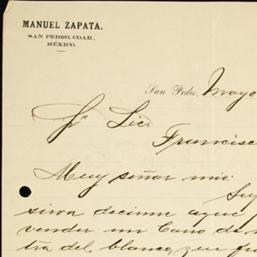 MANUEL ZAPATA.
SAN PEDRO, COAH.,
MÉXICO.
San Pedro, Mayo
Sr. Lic.
Francisc
Muy señor mio:
Su
sirva decirme aque
vender un Carro de
tra del blanco, que fu